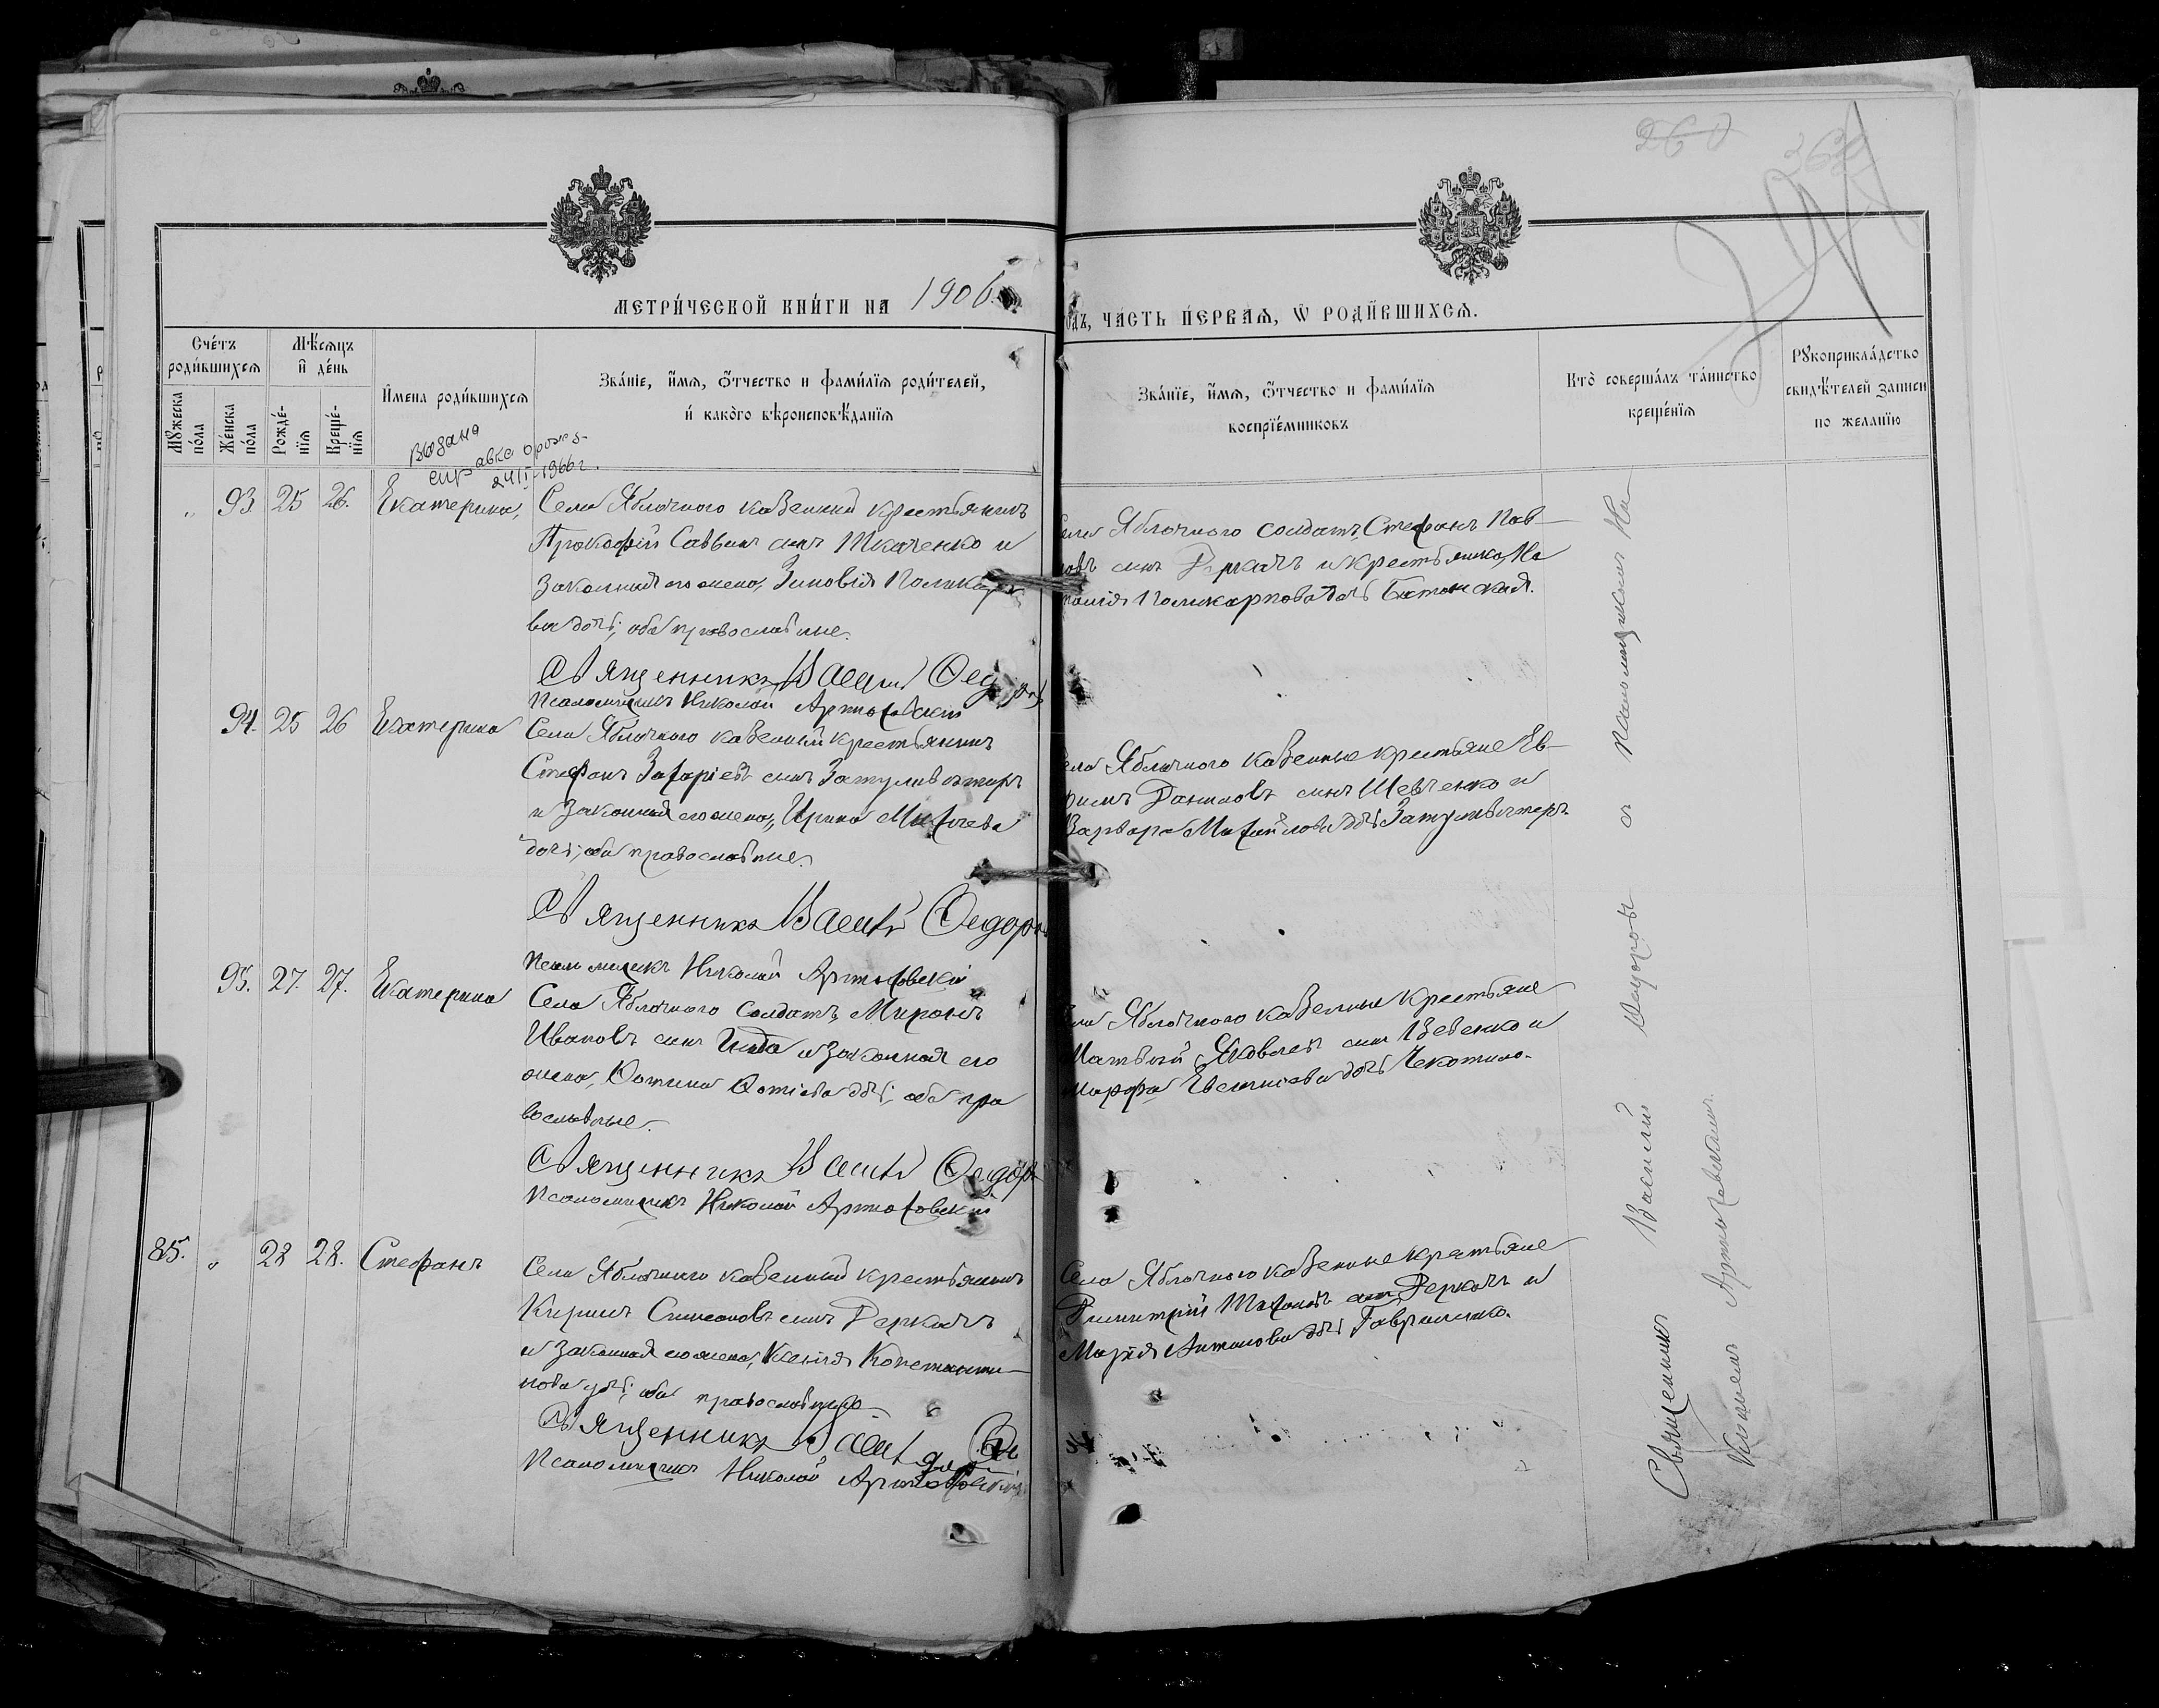 260
МЕТРИЧЕСКОЙ КНИГИ НА 1906
ОДЪ, ЧАСТЬ ПЕРВАЯ, Ѿ РОДИВШИХСЯ.
Счетъ родившихся
Мужеска пола
Женска пола
Мѣсяцъ и день
Рожде-нія
Креще-нія
Имена родившихся
Званіе, имя, отчество и фамилія родителей,
и какого вѣроисповѣданія
Званіе, имя, отчество и фамилія
воспріемниковъ
Кто совершалъ таинство
крещенія
Рукоприкладство
свидѣтелей записи
по желанію
Выдана
справка о рожд-
1966 г.
" 93 25 26. Екатерина,
Села Яблочного казенный крестьянинъ
Прокофій Саввинъ сынъ Ткаченко и
законная его жена, Зиновія Поликарпо
ва дочь; оба православные.
Священникъ Василій
Псаломщикъ Николай Артюховскій
Яблочного солдатъ, Стефанъ Пав-
ловъ сынъ Деркачъ и крестьянка,
Поликарпова дочь
94. 25 26 Екатерина
Села Яблочного казенный крестьянинъ
Стефанъ Захаріевъ сынъ Затуливѣтеръ
и законная его жена, Ирина
дочь; оба православные.
Священникъ Василій Федоровъ
Псаломщикъ Николай Артюховскій
Яблочного казенные крестьяне Ев-
фимъ Даниловъ сынъ Шевченко и
Варвара Михайлова дочь Затуливѣтеръ.
95. 27. 27. Екатерина
Села Яблочного солдатъ, Миронъ
Ивановъ сынъ и законная его
жена, Фотина Фотіева дочь; оба пра
вославные.
Священникъ Василій
Псаломщикъ Николай Артюховскій
Яблочного казенные крестьяне
Матвѣй Яковлевъ сынъ и
Марфа дочь Чекотило.
85. " 28 28. Стефанъ
Села Яблочного казенный крестьянинъ
Кириллъ Симеоновъ сынъ Деркачъ
и законная его жена, Ксенія Константи-
нова дочь; оба православные
Священникъ
Псаломщикъ Николай Артюховскій
Села Яблочного казенные крестьяне
Димитрій Тихоновъ сынъ Деркачъ и
Марія Антонова дочь Гавриленко.
Священникъ Василій Федоровъ съ псаломщикомъ Ни-
колаемъ Артюховскимъ.